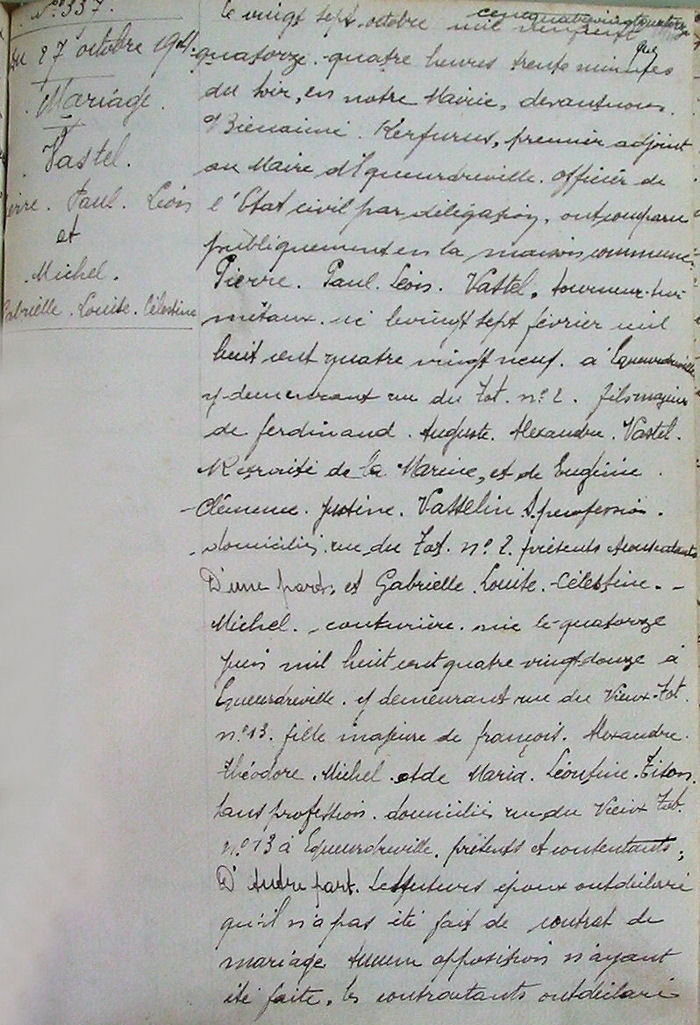 N° 337.
Du 27 octobre 1914.
Mariage.
Vastel.
Pierre. Paul. Léon
et
Michel.
Gabrielle. Louise. Célestine
Le vingt sept octobre mil neuf cent
quatorze. quatre heures trente minutes
du soir, en notre Mairie, devant nous.
Bienaimé. Kerfurus, premier adjoint
au Maire d'Equeurdreville. officier de
l'Etat civil par délégation, ont comparu
publiquement en la maison commune
Pierre. Paul. Léon. Vastel. tourneur sur
métaux. né le vingt sept février mil
huit cent quatre vingt neuf. à Equeurdreville
y demeurant rue du Tot. n° 2. fils majeur
de ferdinand. Auguste. Alexandre. Vastel.
Retraité de la Marine, et de Eugénie.
Clémence. Justine. Vasselin S. profession.
domiciliés rue du Tot. n° 2. présents et consentants
D'une part; et Gabrielle. Louise. Célestine.
Michel. couturière. née le quatorze
juin mil huit cent quatre vingt douze à
Equeurdreville. y demeurant rue du Vieux-Tot.
n° 13. fille majeure de françois. Alexandre.
Théodore. Michel et de Maria. Léontine. Titon.
sans profession. domiciliés rue du Vieux Tot.
n° 13 à Equeurdreville. présents et consentants;
D'Autre part. Les futurs époux ont déclaré
qu'il n'a pas été fait de contrat de
mariage Aucune opposition n'ayant
été faite, les contractants ont déclaré